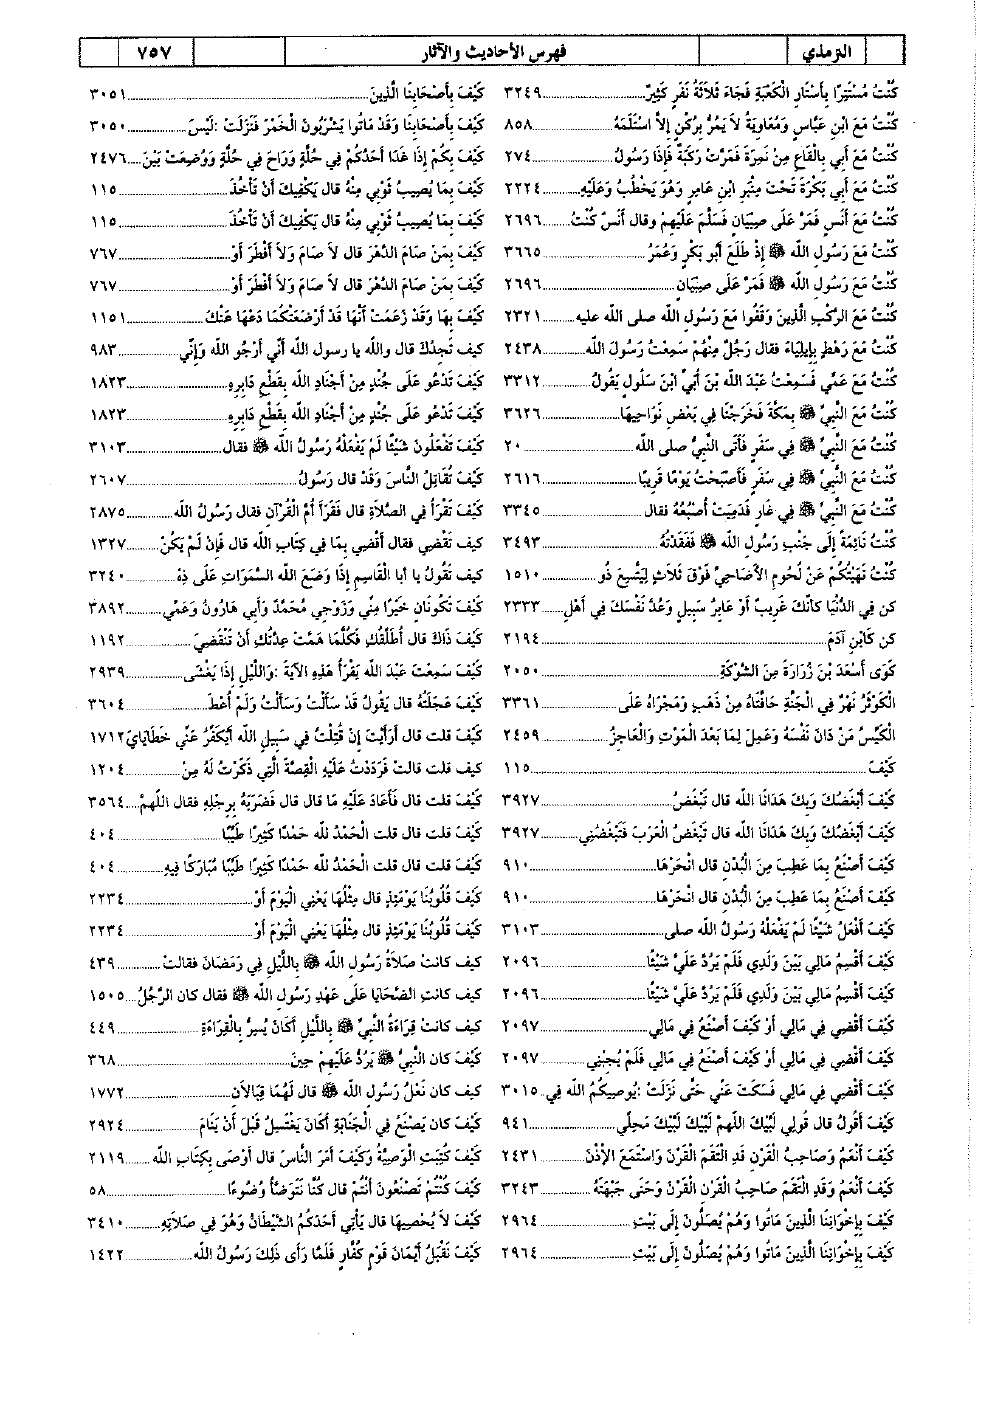 الترمذي
فهرس الأحاديث والآثار
٧٥٧
كُنْتُ مُسْتَتِرًا بِأَسْتَارِ الْكَعْبَةِ فَجَاءَ ثَلاَثَةُ نَفَرٍ كَثِيرٌ ٣٢٤٩
كُنْتُ مَعَ ابْنِ عَبَّاسٍ وَمُعَاوِيَةُ لاَ يَمُرُّ بِرُكْنٍ إلاَّ اسْتَلَمَهُ ٨٥٨
كُنْتُ مَعَ أَبِي بِالْقَاعِ مِنْ نَمِرَةَ فَمَرَّتْ رَكَبَةٌ فَإِذَا رَسُولُ ٢٧٤
كُنْتُ مَعَ أَبِي بَكْرَةَ تَحْتَ مِنْبَرِ ابْنِ عَامِرٍ وَهُوَ يَخْطُبُ وَعَلَيْهِ ٢٢٢٤
كُنْتُ مَعَ أَنَسٍ فَمَرَّ عَلَى صِبْيَانٍ فَسَلَّمَ عَلَيْهِمْ وقال أَنَسٌ كُنْتُ ٢٦٩٦
كُنْتُ مَعَ رَسُولِ اللَّه ﷺ إذْ طَلَعَ أَبُو بَكْرٍ وَعُمَرُ ٣٦٦٥
كُنْتُ مَعَ رَسُولِ اللَّه ﷺ فَمَرَّ عَلَى صِبْيَانٍ ٢٦٩٦
كُنْتُ مَعَ الرَّكْبِ الَّذِينَ وَقَفُوا مَعَ رَسُولِ اللَّه صلى اللَّه عليه ٢٣٢١
كُنْتُ مَعَ رَهْطٍ بِإِيلِيَاءَ فقال رَجُلٌ مِنْهُمْ سَمِعْتُ رَسُولَ اللَّه ٢٤٣٨
كُنْتُ مَعَ عَمِّي فَسَمِعْتُ عَبْدَ اللَّه بْنَ أُبَيٍّ ابْنَ سَلُولَ يَقُولُ ٣٣١٢
كُنْتُ مَعَ النَّبِيِّ ﷺ بِمَكَّةَ فَخَرَجْنَا فِي بَعْضِ نَوَاحِيهَا ٣٦٢٦
كُنْتُ مَعَ النَّبِيِّ ﷺ فِي سَفَرٍ فَأَتَى النَّبِيُّ صلى اللَّه ٢٠
كُنْتُ مَعَ النَّبِيِّ ﷺ فِي سَفَرٍ فَأَصْبَحْتُ يَوْمًا قَرِيبًا ٢٦١٦
كُنْتُ مَعَ النَّبِيِّ ﷺ فِي غَارٍ فَدَمِيَتْ أُصْبُعُهُ فقال ٣٣٤٥
كُنْتُ نَائِمَةً إلَى جَنْبِ رَسُولِ اللَّه ﷺ فَفَقَدْتُهُ ٣٤٩٣
كُنْتُ نَهَيْتُكُمْ عَنْ لُحُومِ الأَضَاحِيِّ فَوْقَ ثَلاَثٍ لِيَتَّسِعَ ذُو ١٥١٠
كن فِي الدُّنْيَا كأَنَّكَ غَرِيبٌ أَوْ عَابِرُ سَبِيلٍ وَعُدَّ نَفْسَكَ فِي أَهْلِ ٢٣٣٣
كن كَابْنِ آدَمَ ٢١٩٤
كَوَى أَسْعَدَ بْنَ زُرَارَةَ مِنَ الشَّوْكَةِ ٢٠٥٠
الْكَوْثَرُ نَهْرٌ فِي الْجَنَّةِ حَافَتَاهُ مِنْ ذَهَبٍ وَمَجْرَاهُ عَلَى ٣٣٦١
الْكَيِّسُ مَنْ دَانَ نَفْسَهُ وَعَمِلَ لِمَا بَعْدَ الْمَوْتِ وَالْعَاجِزُ ٢٤٥٩
كَيْفَ ١١٥
كَيْفَ أَبْغَضُكَ وَبِكَ هَدَانَا اللَّه قال تَبْغَضُ ٣٩٢٧
كَيْفَ أَبْغَضُكَ وَبِكَ هَدَانَا اللَّه قال تَبْغَضُ الْعَرَبَ فَتَبْغَضُنِي ٣٩٢٧
كَيْفَ أَصْنَعُ بِمَا عَطِبَ مِنَ الْبُدْنِ قال انْحَرْهَا ٩١٠
كَيْفَ أَصْنَعُ بِمَا عَطِبَ مِنَ الْبُدْنِ قال انْحَرْهَا ٩١٠
كَيْفَ أَفْعَلُ شَيْئًا لَمْ يَفْعَلْهُ رَسُولُ اللَّه صلى ٣١٠٣
كَيْفَ أَقْسِمُ مَالِي بَيْنَ وَلَدِي فَلَمْ يَرُدَّ عَلَيَّ شَيْئًا ٢٠٩٦
كَيْفَ أَقْسِمُ مَالِي بَيْنَ وَلَدِي فَلَمْ يَرُدَّ عَلَيَّ شَيْئًا ٢٠٩٦
كَيْفَ أَقْضِي فِي مَالِي أَوْ كَيْفَ أَصْنَعُ فِي مَالِي ٢٠٩٧
كَيْفَ أَقْضِي فِي مَالِي أَوْ كَيْفَ أَصْنَعُ فِي مَالِي فَلَمْ يُجِبْنِي ٢٠٩٧
كَيْفَ أَقْضِي فِي مَالِي فَسَكَتَ عَنِّي حَتَّى نَزَلَتْ :يُوصِيكُمُ اللَّه فِي ٣٠١٥
كَيْفَ أَقُولُ قال قُولِي لَبَّيْكَ اللَّهمَّ لَبَّيْكَ لَبَّيْكَ مَحِلِّي ٩٤١
كَيْفَ أَنْعَمُ وَصَاحِبُ الْقَرْنِ قَدِ الْتَقَمَ الْقَرْنَ وَاسْتَمَعَ الإِذْنَ ٢٤٣١
كَيْفَ أَنْعَمُ وَقَدِ الْتَقَمَ صَاحِبُ الْقَرْنِ الْقَرْنَ وَحَنَى جَبْهَتَهُ ٣٢٤٣
كَيْفَ بِإِخْوَانِنَا الَّذِينَ مَاتُوا وَهُمْ يُصَلُّونَ إلَى بَيْتِ ٢٩٦٤
كَيْفَ بِإِخْوَانِنَا الَّذِينَ مَاتُوا وَهُمْ يُصَلُّونَ إلَى بَيْتِ ٢٩٦٤
كَيْفَ بِأَصْحَابِنَا الَّذِينَ ٣٠٥١
كَيْفَ بِأَصْحَابِنَا وَقَدْ مَاتُوا يَشْرَبُونَ الْخَمْرَ فَنَزَلَتْ :لَيْسَ ٣٠٥٠
كَيْفَ بِكُمْ إذَا غَدَا أَحَدُكُمْ فِي حُلَّةٍ وَرَاحَ فِي حُلَّةٍ وَوُضِعَتْ بَيْنَ ٢٤٧٦
كَيْفَ بِمَا يُصِيبُ ثَوْبِي مِنْهُ قال يَكْفِيكَ أَنْ تَأْخُذَ ١١٥
كَيْفَ بِمَا يُصِيبُ ثَوْبِي مِنْهُ قال يَكْفِيكَ أَنْ تَأْخُذَ ١١٥
كَيْفَ بِمَنْ صَامَ الدَّهْرَ قال لاَ صَامَ وَلاَ أَفْطَرَ أَوْ ٧٦٧
كَيْفَ بِمَنْ صَامَ الدَّهْرَ قال لاَ صَامَ وَلاَ أَفْطَرَ أَوْ ٧٦٧
كَيْفَ بِهَا وَقَدْ زَعَمَتْ أَنَّهَا قَدْ أَرْضَعَتْكُمَا دَعْهَا عَنْكَ ١١٥١
كيف تَجِدُكَ قال واللَّه يا رسول اللَّه أَنِّي أَرْجُو اللَّه وَإِنِّي ٩٨٣
كَيْفَ تَدْعُو عَلَى جُنْدٍ مِنْ أَجْنَادِ اللَّه بِقَطْعِ دَابِرِهِ ١٨٢٣
كَيْفَ تَدْعُو عَلَى جُنْدٍ مِنْ أَجْنَادِ اللَّه بِقَطْعِ دَابِرِهِ ١٨٢٣
كَيْفَ تَفْعَلُونَ شَيْئًا لَمْ يَفْعَلْهُ رَسُولُ اللَّه ﷺ فقال ٣١٠٣
كَيْفَ تُقَاتِلُ النَّاسَ وَقَدْ قال رَسُولُ ٢٦٠٧
كَيْفَ تَقْرَأُ فِي الصَّلاَةِ قال فَقَرَأَ أُمَّ الْقُرْآنِ فقال رَسُولُ اللَّه ٢٨٧٥
كيف تَقْضِي فقال أَقْضِي بِمَا فِي كِتَابِ اللَّه قال فَإِنْ لَمْ يَكُنْ ١٣٢٧
كيف تَقُولُ يا أبا الْقَاسِمِ إذَا وَضَعَ اللَّه السَّمَوَاتِ عَلَى ذِهْ ٣٢٤٠
كَيْفَ تَكُونَانِ خَيْرًا مِنِّي وَزَوْجِي مُحَمَّدٌ وَأَبِي هَارُونُ وَعَمِّي ٣٨٩٢
كَيْفَ ذَاكَ قال أُطَلِّقُكِ فَكُلَّمَا هَمَّتْ عِدَّتُكِ أَنْ تَنْقَضِيَ ١١٩٢
كَيْفَ سَمِعْتَ عَبْدَ اللَّه يَقْرَأُ هَذِهِ الآيَةَ :وَاللَّيْلِ إذَا يَغْشَى ٢٩٣٩
كَيْفَ عَجَلَتُهُ قال يَقُولُ قَدْ سَأَلْتُ وَسَأَلْتُ وَلَمْ أُعْطَ ٣٦٠٤
كَيْفَ قلت قال أَرَأَيْتَ إنْ قُتِلْتُ فِي سَبِيلِ اللَّه أَيُكَفِّرُ عَنِّي خَطَايَايَ ١٧١٢
كيف قلت قالت فَرَدَدْتُ عَلَيْهِ الْقِصَّةَ الَّتِي ذَكَرْتُ لَهُ مِنْ ١٢٠٤
كَيْفَ قلت قال فَأَعَادَ عَلَيْهِ مَا قال قال فَضَرَبَهُ بِرِجْلِهِ فقال اللَّهمَّ ٣٥٦٤
كَيْفَ قلت قال قلت الْحَمْدُ للَّه حَمْدًا كَثِيرًا طَيِّبًا ٤٠٤
كَيْفَ قلت قال قلت الْحَمْدُ للَّه حَمْدًا كَثِيرًا طَيِّبًا مُبَارَكًا فِيهِ ٤٠٤
كَيْفَ قُلُوبُنَا يَوْمَئِذٍ قال مِثْلُهَا يَعْنِي الْيَوْمَ أَوْ ٢٢٣٤
كَيْفَ قُلُوبُنَا يَوْمَئِذٍ قال مِثْلُهَا يَعْنِي الْيَوْمَ أَوْ ٢٢٣٤
كيف كانت صَلاَةُ رَسُولِ اللَّه ﷺ بِاللَّيْلِ فِي رَمَضَانَ فقالت ٤٣٩
كيف كانتِ الضَّحَايَا عَلَى عَهْدِ رَسُولِ اللَّه ﷺ فقال كان الرَّجُلُ ١٥٠٥
كيف كانت قِرَاءَةُ النَّبِيِّ ﷺ بِاللَّيْلِ أَكَانَ يُسِرُّ بِالْقِرَاءَةِ ٤٤٩
كَيْفَ كان النَّبِيُّ ﷺ يَرُدُّ عَلَيْهِمْ حِينَ ٣٦٨
كيف كان نَعْلُ رَسُولِ اللَّه ﷺ قال لَهُمَا قِبَالاَنِ ١٧٧٢
كَيْفَ كان يَصْنَعُ فِي الْجَنَابَةِ أَكَانَ يَغْتَسِلُ قَبْلَ أَنْ يَنَامَ ٢٩٢٤
كَيْفَ كُتِبَتِ الْوَصِيَّةُ وَكَيْفَ أَمَرَ النَّاسَ قال أَوْصَى بِكِتَابِ اللَّه ٢١١٩
كَيْفَ كُنْتُمْ تَصْنَعُونَ أَنْتُمْ قال كُنَّا نَتَوَضَّأُ وُضُوءًا ٥٨
كَيْفَ لاَ يُحْصِيهَا قال يَأْتِي أَحَدَكُمُ الشَّيْطَانُ وَهُوَ فِي صَلاَتِهِ ٣٤١٠
كَيْفَ نَقْبَلُ أَيْمَانَ قَوْمٍ كُفَّارٍ فَلَمَّا رَأَى ذَلِكَ رَسُولُ اللَّه ١٤٢٢